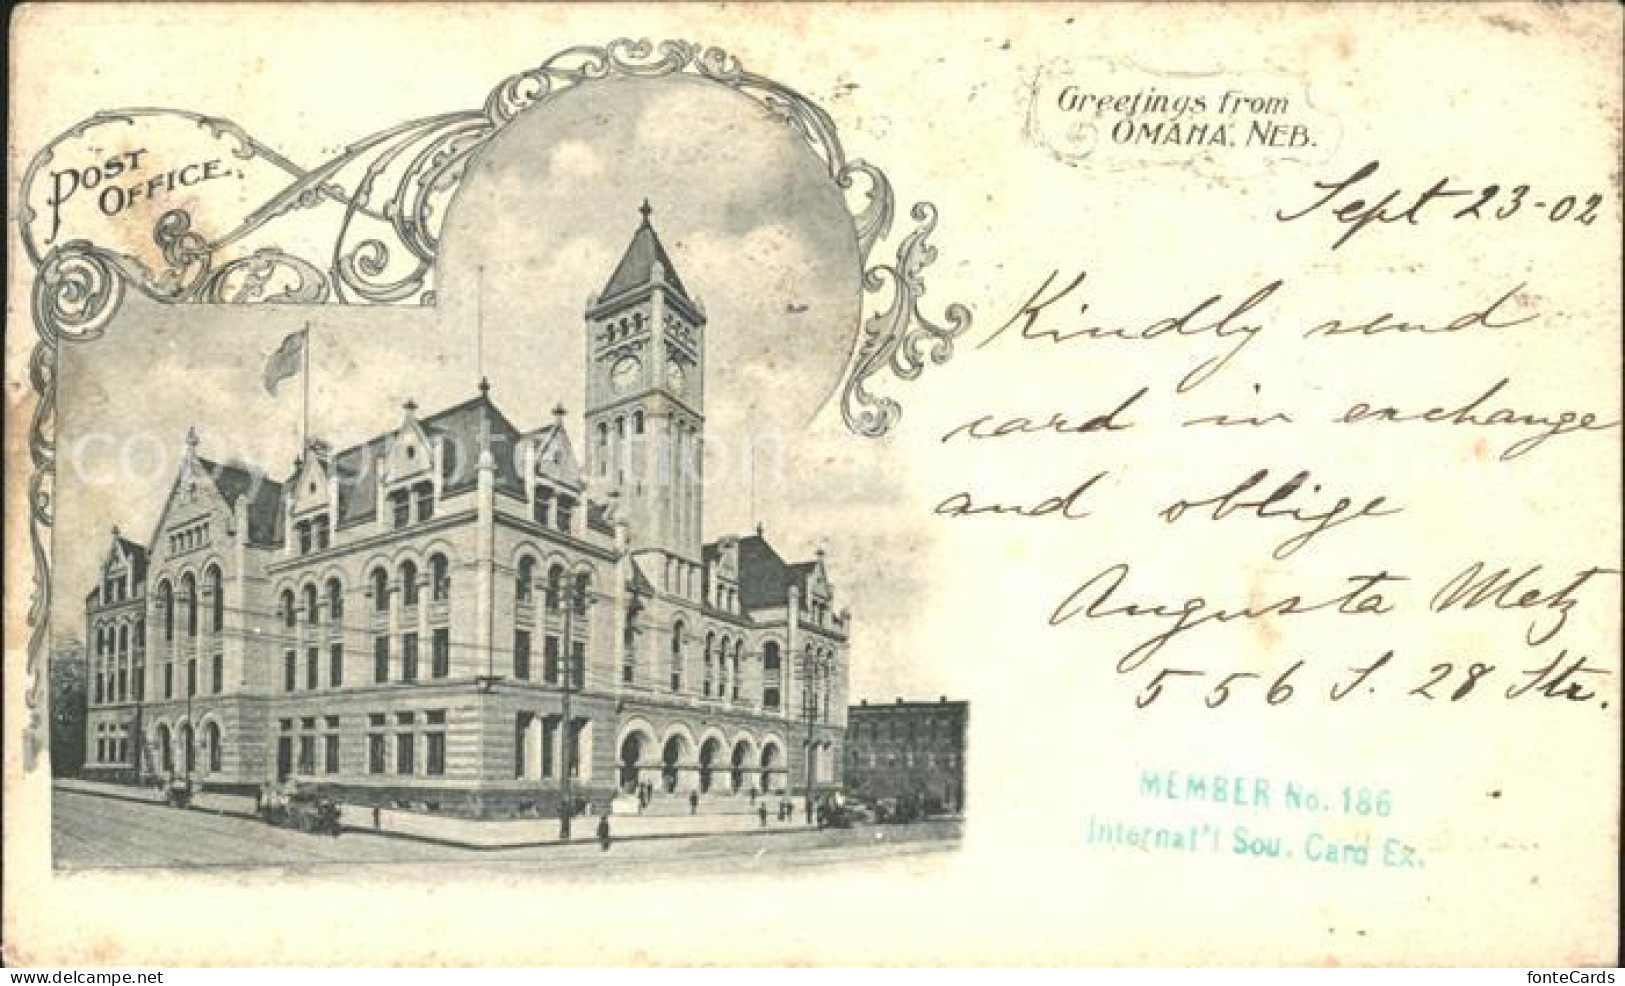 POST
OFFICE.
Greetings from
OMAHA, NEB.
Sept 23-02
Kindly send
card in exchange
and oblige
Augusta Metz
556 S. 28 Str.
MEMBER No. 186
Internat'l Sou. Card Ex.
www.delcampe.net
fonteCards